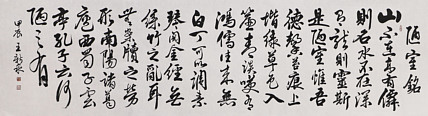 陋室銘
山不在高有僊
則名水不在深
有龍則靈斯
是陋室惟吾
德馨苔痕上
階綠草色入
簾青談笑有
鴻儒往來無
白丁可以調素
琴閱金經無
絲竹之亂耳
無案牘之勞
形南陽諸葛
廬西蜀子雲
亭孔子云何
陋之有
甲辰王